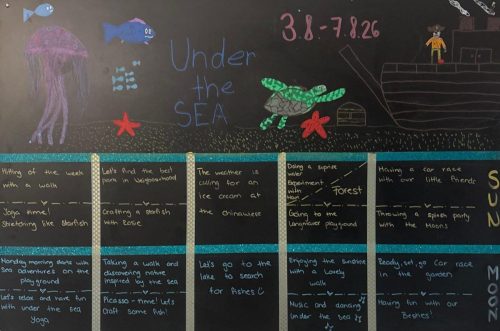 3.8-7.8.26
Under
the
SEA
Hitting of the week
with a walk
Yoga time!
Stretching like Starfish
Let's find the best
park in Neighbourhood
Crafting a starfish
with Rosie
The weather is
calling for an
ice cream at
the
Doing a suprise
water
Experiment
with
Forest
Going to the
Langnauer playground
Having a car race
with our little friends
Throwing a splash party
with the Moons
SUN
Monday morning starts with
Sea adventures on the
playground
Let's relax and have fun
with under the sea
Yoga
Taking a walk and
discovering nature
inspired by the sea
Picasso-time! Let's
Craft some fish!
Let's go to the
lake to search
for fishes
Enjoying the sunshine
with a lovely
walk
Music and dancing
Under the sea
Ready, set, go Car race
in the garden
Having fun with our
Besties!
MOON